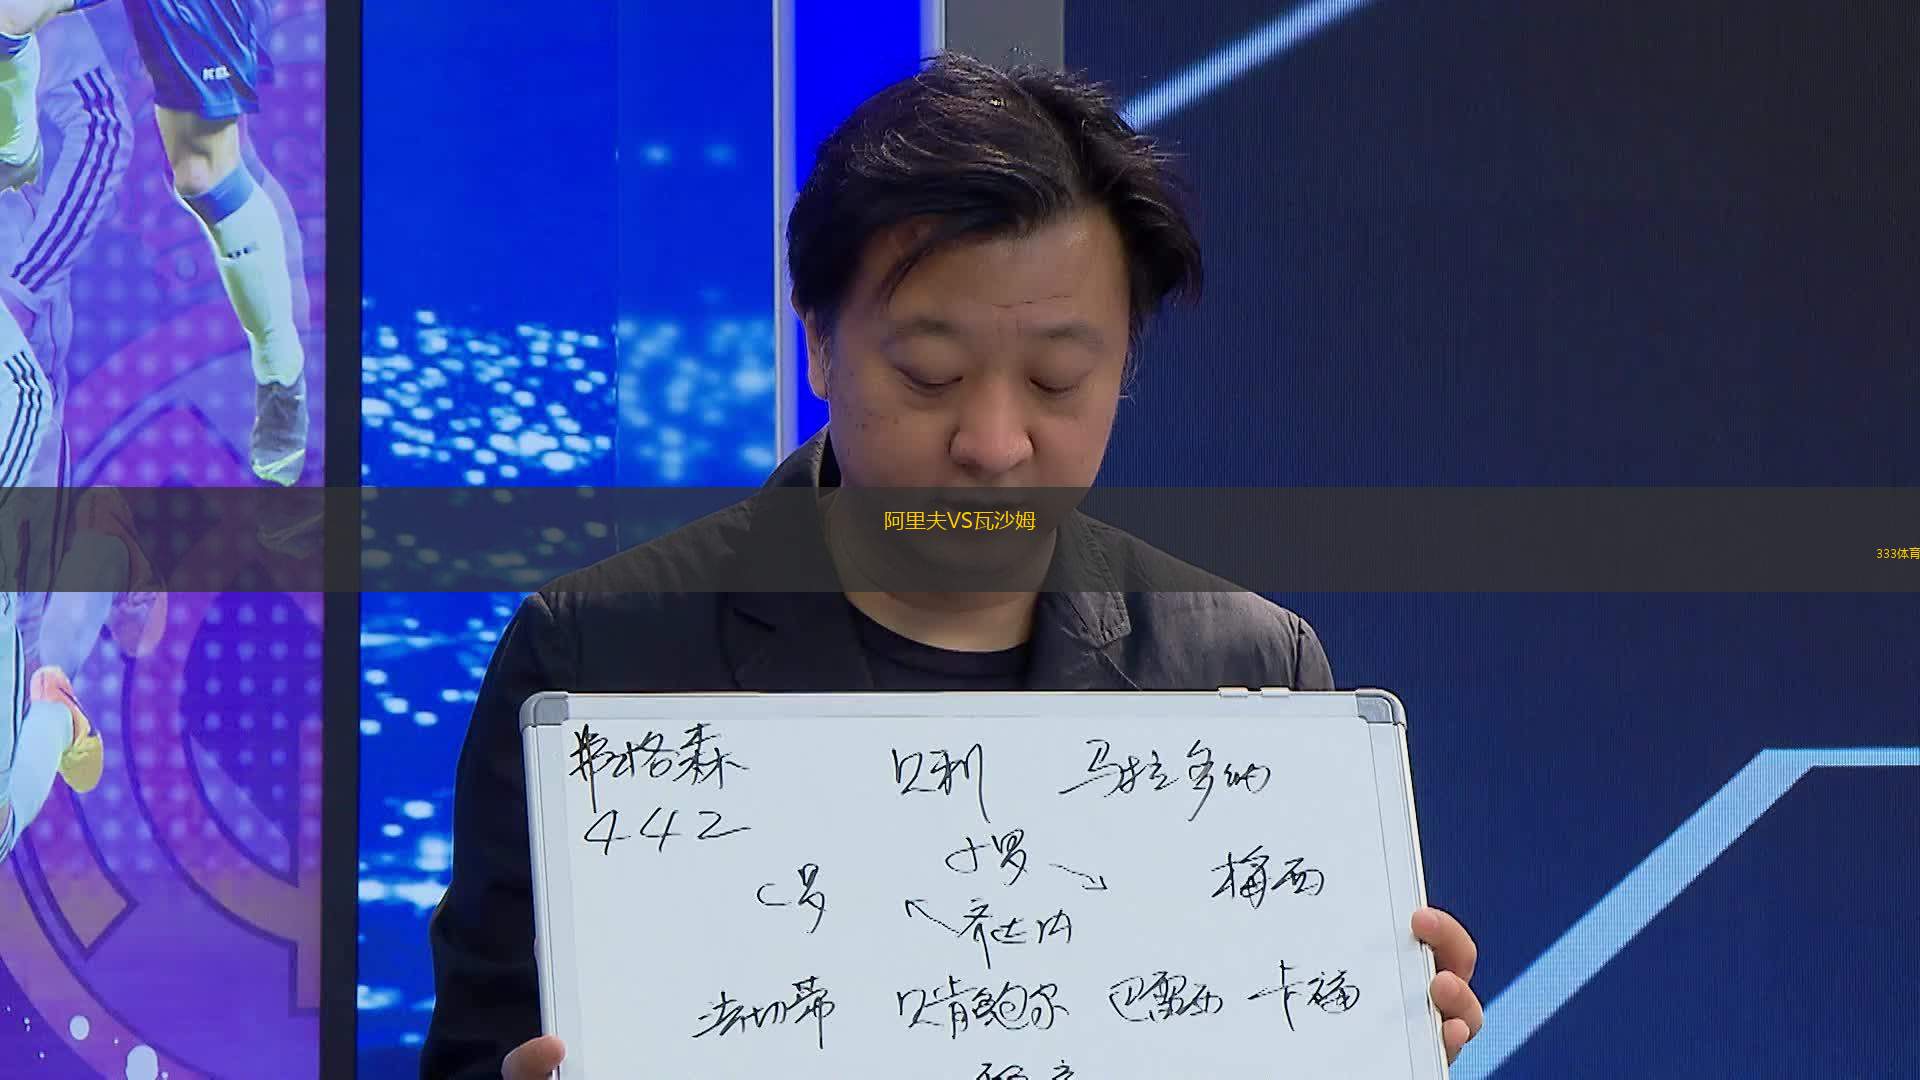 KEL
阿里夫VS瓦沙姆
333体育
弗格森 贝利 马拉多纳
442
小罗
C罗 梅西
齐达内
法切蒂 贝肯鲍尔 巴雷西 卡福